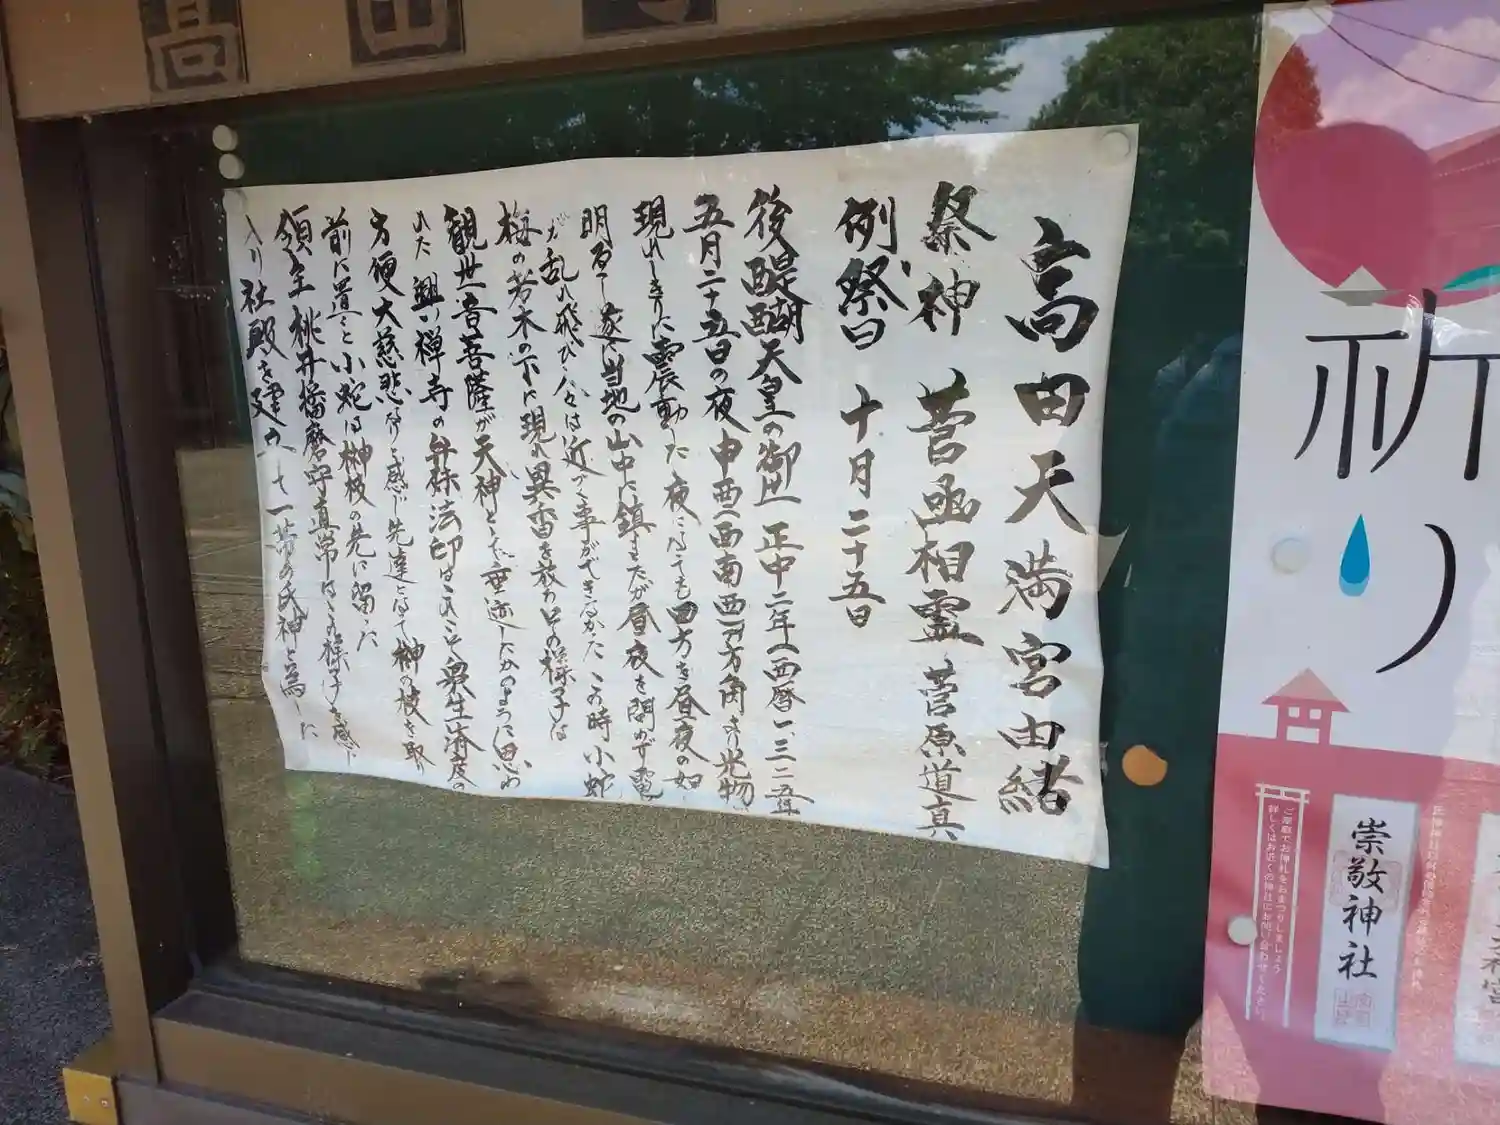 高田
高田天満宮由緒
祭神 菅丞相霊 菅原道真
例祭日 十月二十五日
後醍醐天皇の御世 正中二年(西暦一、三二五年
五月二十五日の夜 申酉(西南西)方角より光物
現れしきりに震動した 夜にても四方を昼夜の如
明るし 遂に当地の山中に鎮まったが昼夜を問わず電
が乱れ飛び人々は近づく事ができなかったこの時 小蛇
梅の若木の下に現れ異香を放つその様子は
観世音菩薩が天神として垂迹したかのように思わ
れた 興禅寺の弁殊法印はこのこと衆生済度の
方便大慈悲なりと感じ先達となって榊の枝を取り
前に置くと小蛇は榊枝の先に留った
領主桃井播磨守直常はその様子を感じ
入り社殿を建立して一帯の氏神と為した
祈り
崇敬神社
ご家庭でお神札をおまつりしましょう
詳しくはお近くの神社にお問い合わせください